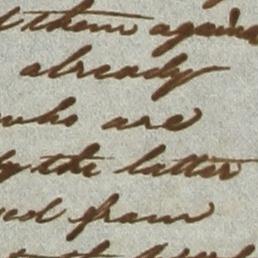 them against
already
who are
by the latter
from